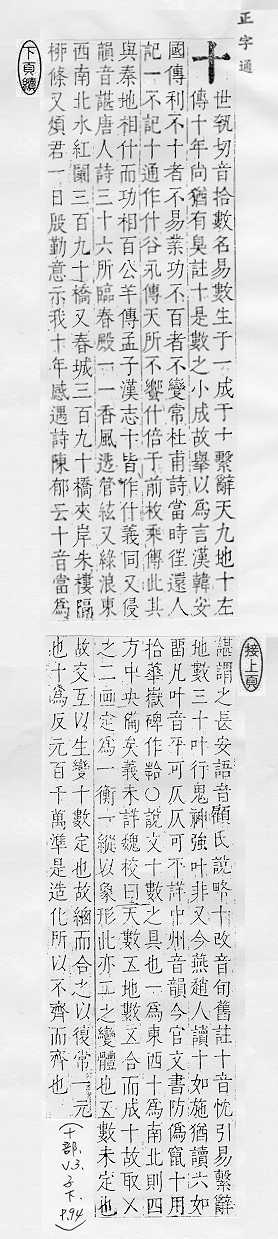 正字通
十
世執切音拾數名易數生于一成于十繫辭天九地十左
傳十年尚猶有臭註十是數之小成故舉以爲言漢韓安
國傳利不十者不易業功不百者不變常杜甫詩當時徃還人
記一不記十通作什谷永傳天所不饗什倍于前枚乘傳此其
與秦地相什而功相百公羊傳孟子漢志十皆作什義同又侵
韻音諶唐人詩三十六所臨春殿一一香風透管絃又綠浪東
西南北水紅闌三百九十橋又春城三百九十橋夾岸朱樓隔
柳條又煩君一日殷勤意示我十年感遇詩陳郁云十音當爲
下頁續
接上頁
諶謂之長安語音顧氏說略十改音旬舊註十音忱引易繫辭
地數三十叶行鬼神強叶非又今燕趙人讀十如施猶讀六如
畱凡叶音平可仄仄可平詳中州音韻今官文書防僞竄十用
拾華嶽碑作○說文十數之具也一爲東西丨爲南北則四
方中央僃矣義未詳魏校曰天數五地數五合而成十故取㐅
之二畫定爲一衡一縱以象形此亦五之變體也五數未定也
故交互以生變十數定也故緫而合之以復常一元
也十爲反元百千萬準是造化所以不齊而齊也
(十部. V.3. 子下. P.94)